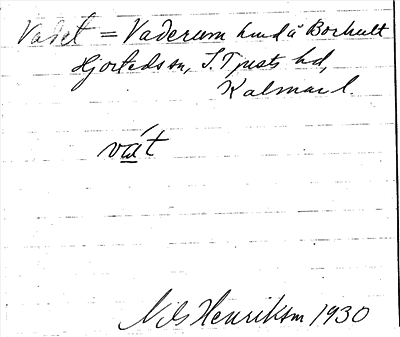 Vadet = Vaderum hmd å Borhult
Hjorteds sn, S. Tjusts hd,
Kalmar l.
vát
Nils Henrikson 1930